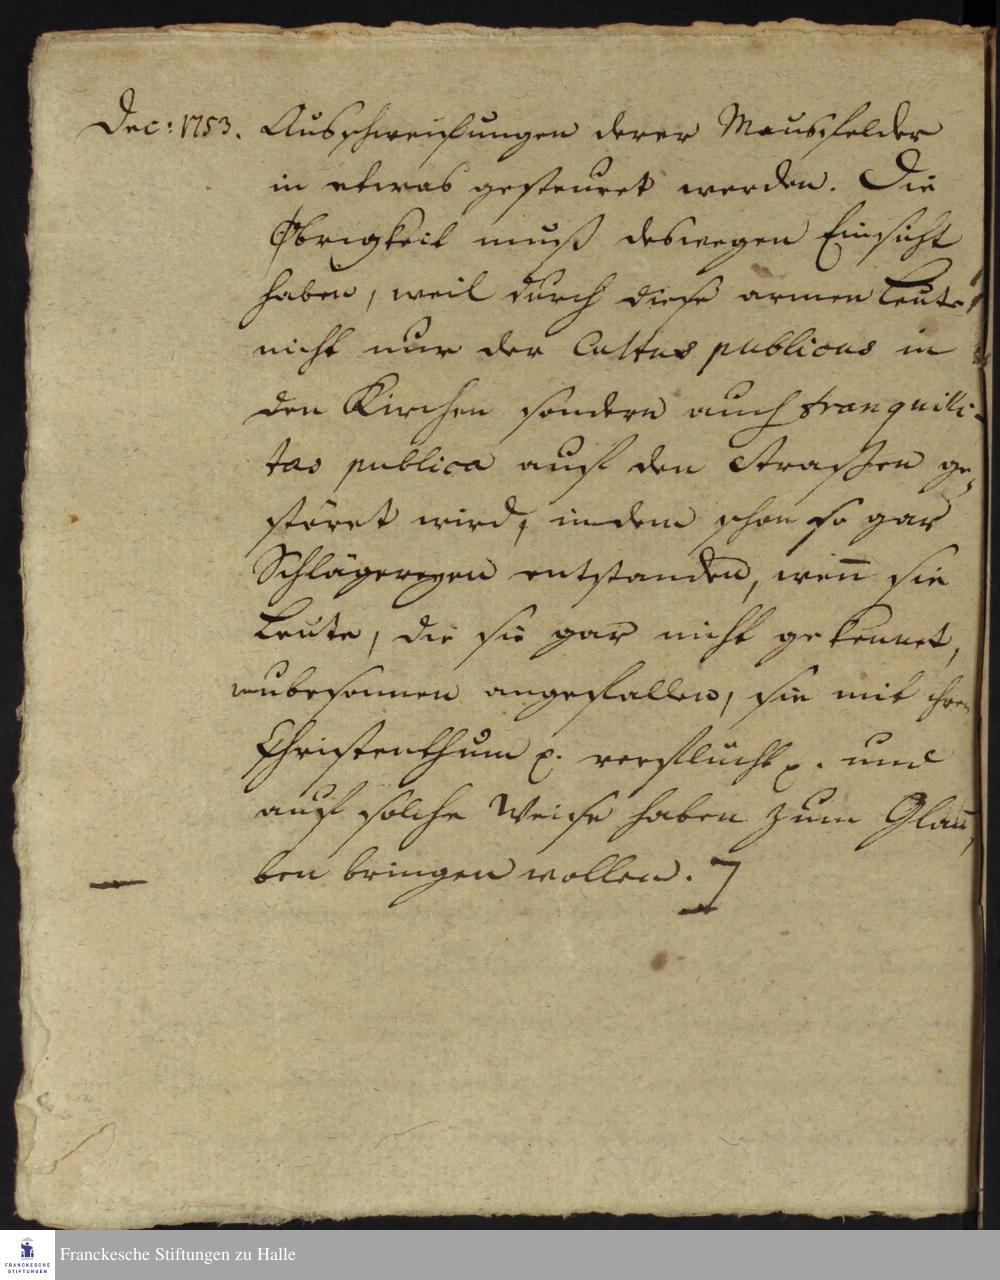 Dec: 1753. Ausschweifungen derer Maußfelder
in etwas gesteuret werden. Die
Obrigkeit muß deswegen Einsicht
haben, weil durch diese armen Leute
nicht nur der Cultus publicus in
den Kirchen sondern auch tranquilli-
tas publica auf den Strassen ge-
störet wird, indem schon so gar
Schlägereyen entstanden, weñ sie
Leute, die sie gar nicht gekennet,
unbesonnen angefallen, sie mit ihren
Christenthum p. verflucht p. und
auf solche Weise haben zum Glau-
ben bringen wollen. ]
Franckesche Stiftungen zu Halle
FRANCKESCHE
STIFTUNGEN